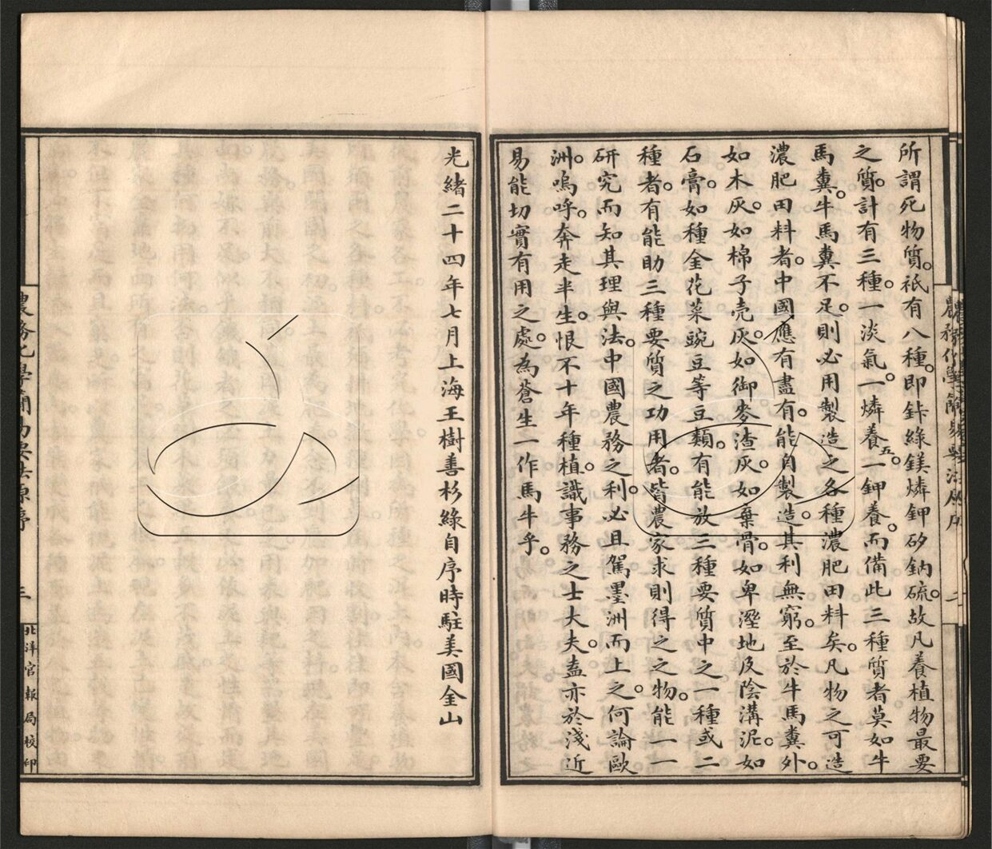 所謂死物質。祇有八種。即鈝綠鎂燐鉀矽鈉硫。故凡養植物最要
之質。計有三種。一淡氣。一燐養五。一鉀養。而備此三種質者莫如牛
馬糞。牛馬糞不足。則必用製造之各種濃肥田料矣。凡物之可造
濃肥田料者。中國應有盡有。能自製造。其利無窮。至於牛馬糞外。
如木灰。如棉子壳灰。如御麥渣灰。如棄骨。如卑溼地及陰溝泥。如
石膏。如種金花菜豌豆等豆類。有能放三種要質中之一種或二
種者。有能助三種要質之功用者。皆農家求則得之之物。能一一
研究而知其理與法。中國農務之利。必且駕墨洲而上之。何論歐
洲。嗚呼。奔走半生。恨不十年種植。識事務之士大夫。盍亦於淺近
易能切實有用之處。為蒼生一作馬牛乎。
光緒二十四年七月上海王樹善杉綠自序時駐美國金山
三
北洋官報局校印